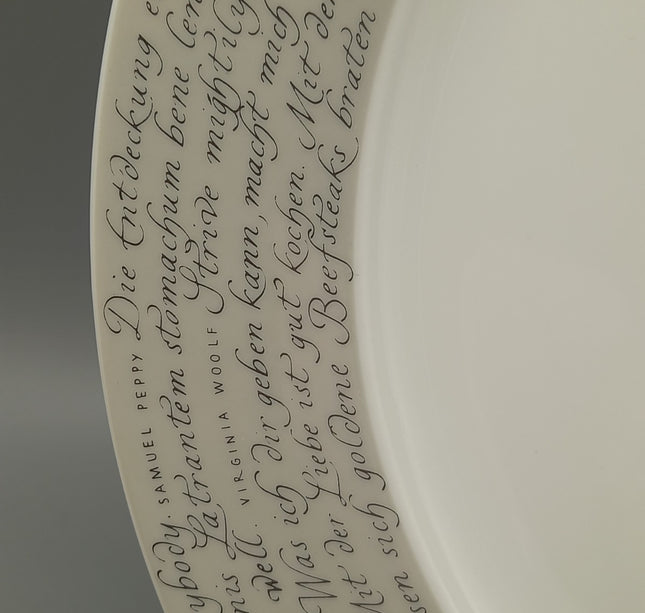 ybody. SAMUEL PEPPY Die Entdeckung
nis Latrantem stomachum bene
well. VIRGINIA WOOLF Strive mightily
Was ich dir geben kann, macht mich
Mit der Liebe ist gut kochen. Mit der
sen sich goldene Beefsteaks braten